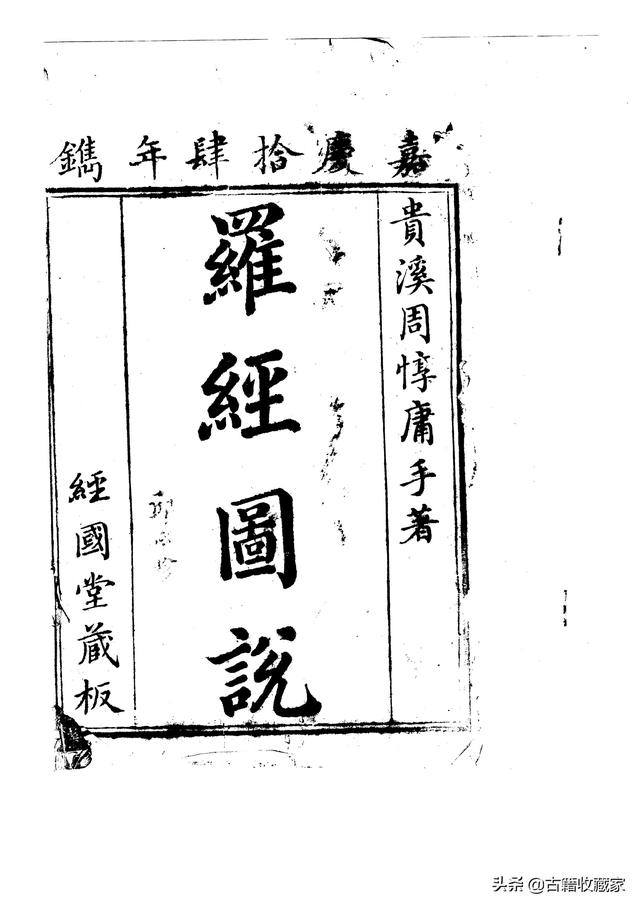 嘉慶拾肆年鐫
貴溪周惇庸手著
羅經圖說
經國堂藏板
头条 @古籍收藏家